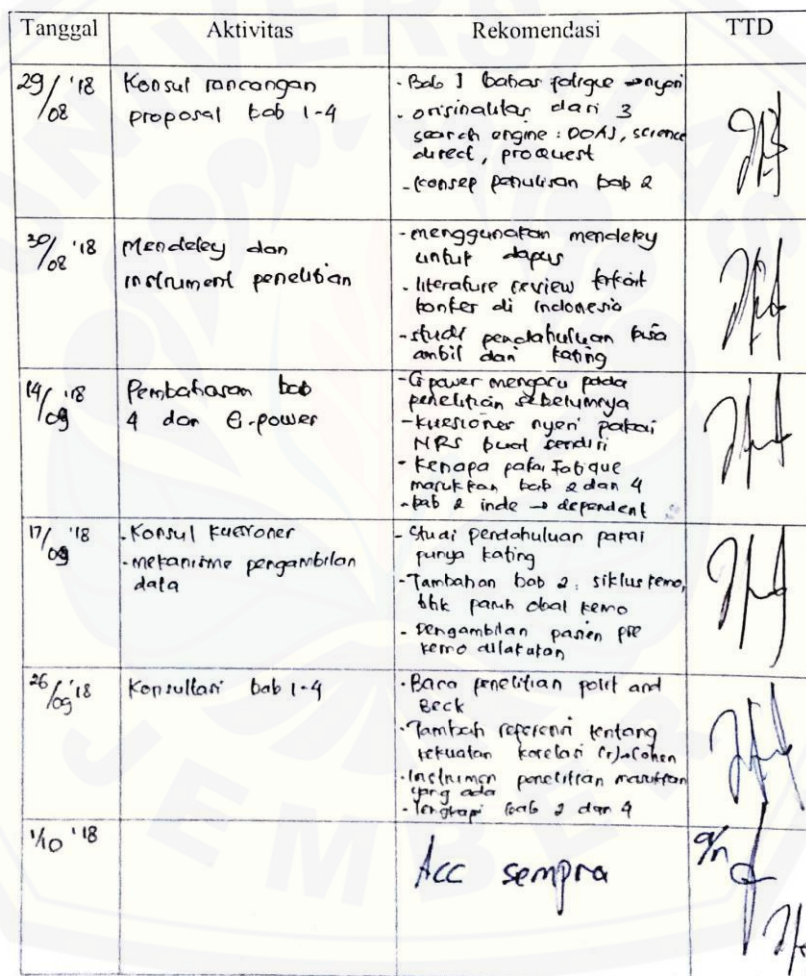 Tanggal Aktivitas Rekomendasi TTD
29/08 '18 Konsul rancangan proposal bab 1-4
- Bab I bahas fatigue → nyeri
- orisinalitas dari 3
search engine : DOAJ, science
direct, proquest
- konsep penulisan bab 2
30/08 '18 Mendeley dan
instrument penelitian
- menggunakan mendeley
untuk dapus
- literature review terkait
kanker di Indonesia
- studi pendahuluan bisa
ambil dari kating
14/09 '18 Pembahasan bab
4 dan G-power
- G power mengacu pada
penelitian sebelumnya
- kuesioner nyeri pakai
NRS buat sendiri
- kenapa pakai Fatigue
masukkan bab 2 dan 4
- bab 2 inde → dependent
17/09 '18 - Konsul kuesioner
- mekanisme pengambilan
data
- Studi pendahuluan pakai
punya kating
- Tambahan bab 2 : siklus kemo,
paruh obat kemo
- Pengambilan pasien pre
kemo dilakukan
26/09 '18 Konsultasi bab 1-4
- Baca penelitian polit and
Beck
- Tambah referensi tentang
kekuatan korelasi (r) → Cohen
- Instrumen penelitian masukkan
yang ada
- lengkapi bab 2 dan 4
1/10 '18 Acc sempro
UNIVERSITAS
JEMBER